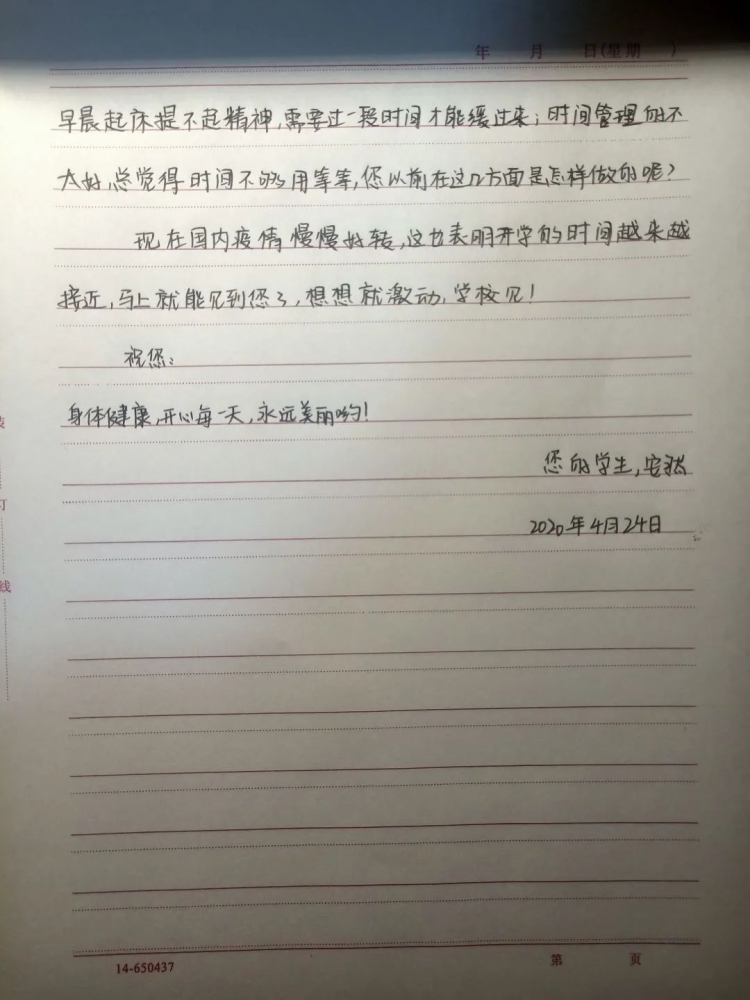 年 月 日(星期 )
早晨起床提不起精神,需要过一段时间才能缓过来;时间管理的不
太好,总觉得时间不够用等等,您以前在这几方面是怎样做的呢?
现在国内疫情慢慢好转,这也表明开学的时间越来越
接近,马上就能见到您了,想想就激动,学校见!
祝您:
身体健康,开心每一天,永远美丽哟!
您的学生,安
2020年4月24日
订
线
14-650437
第 页